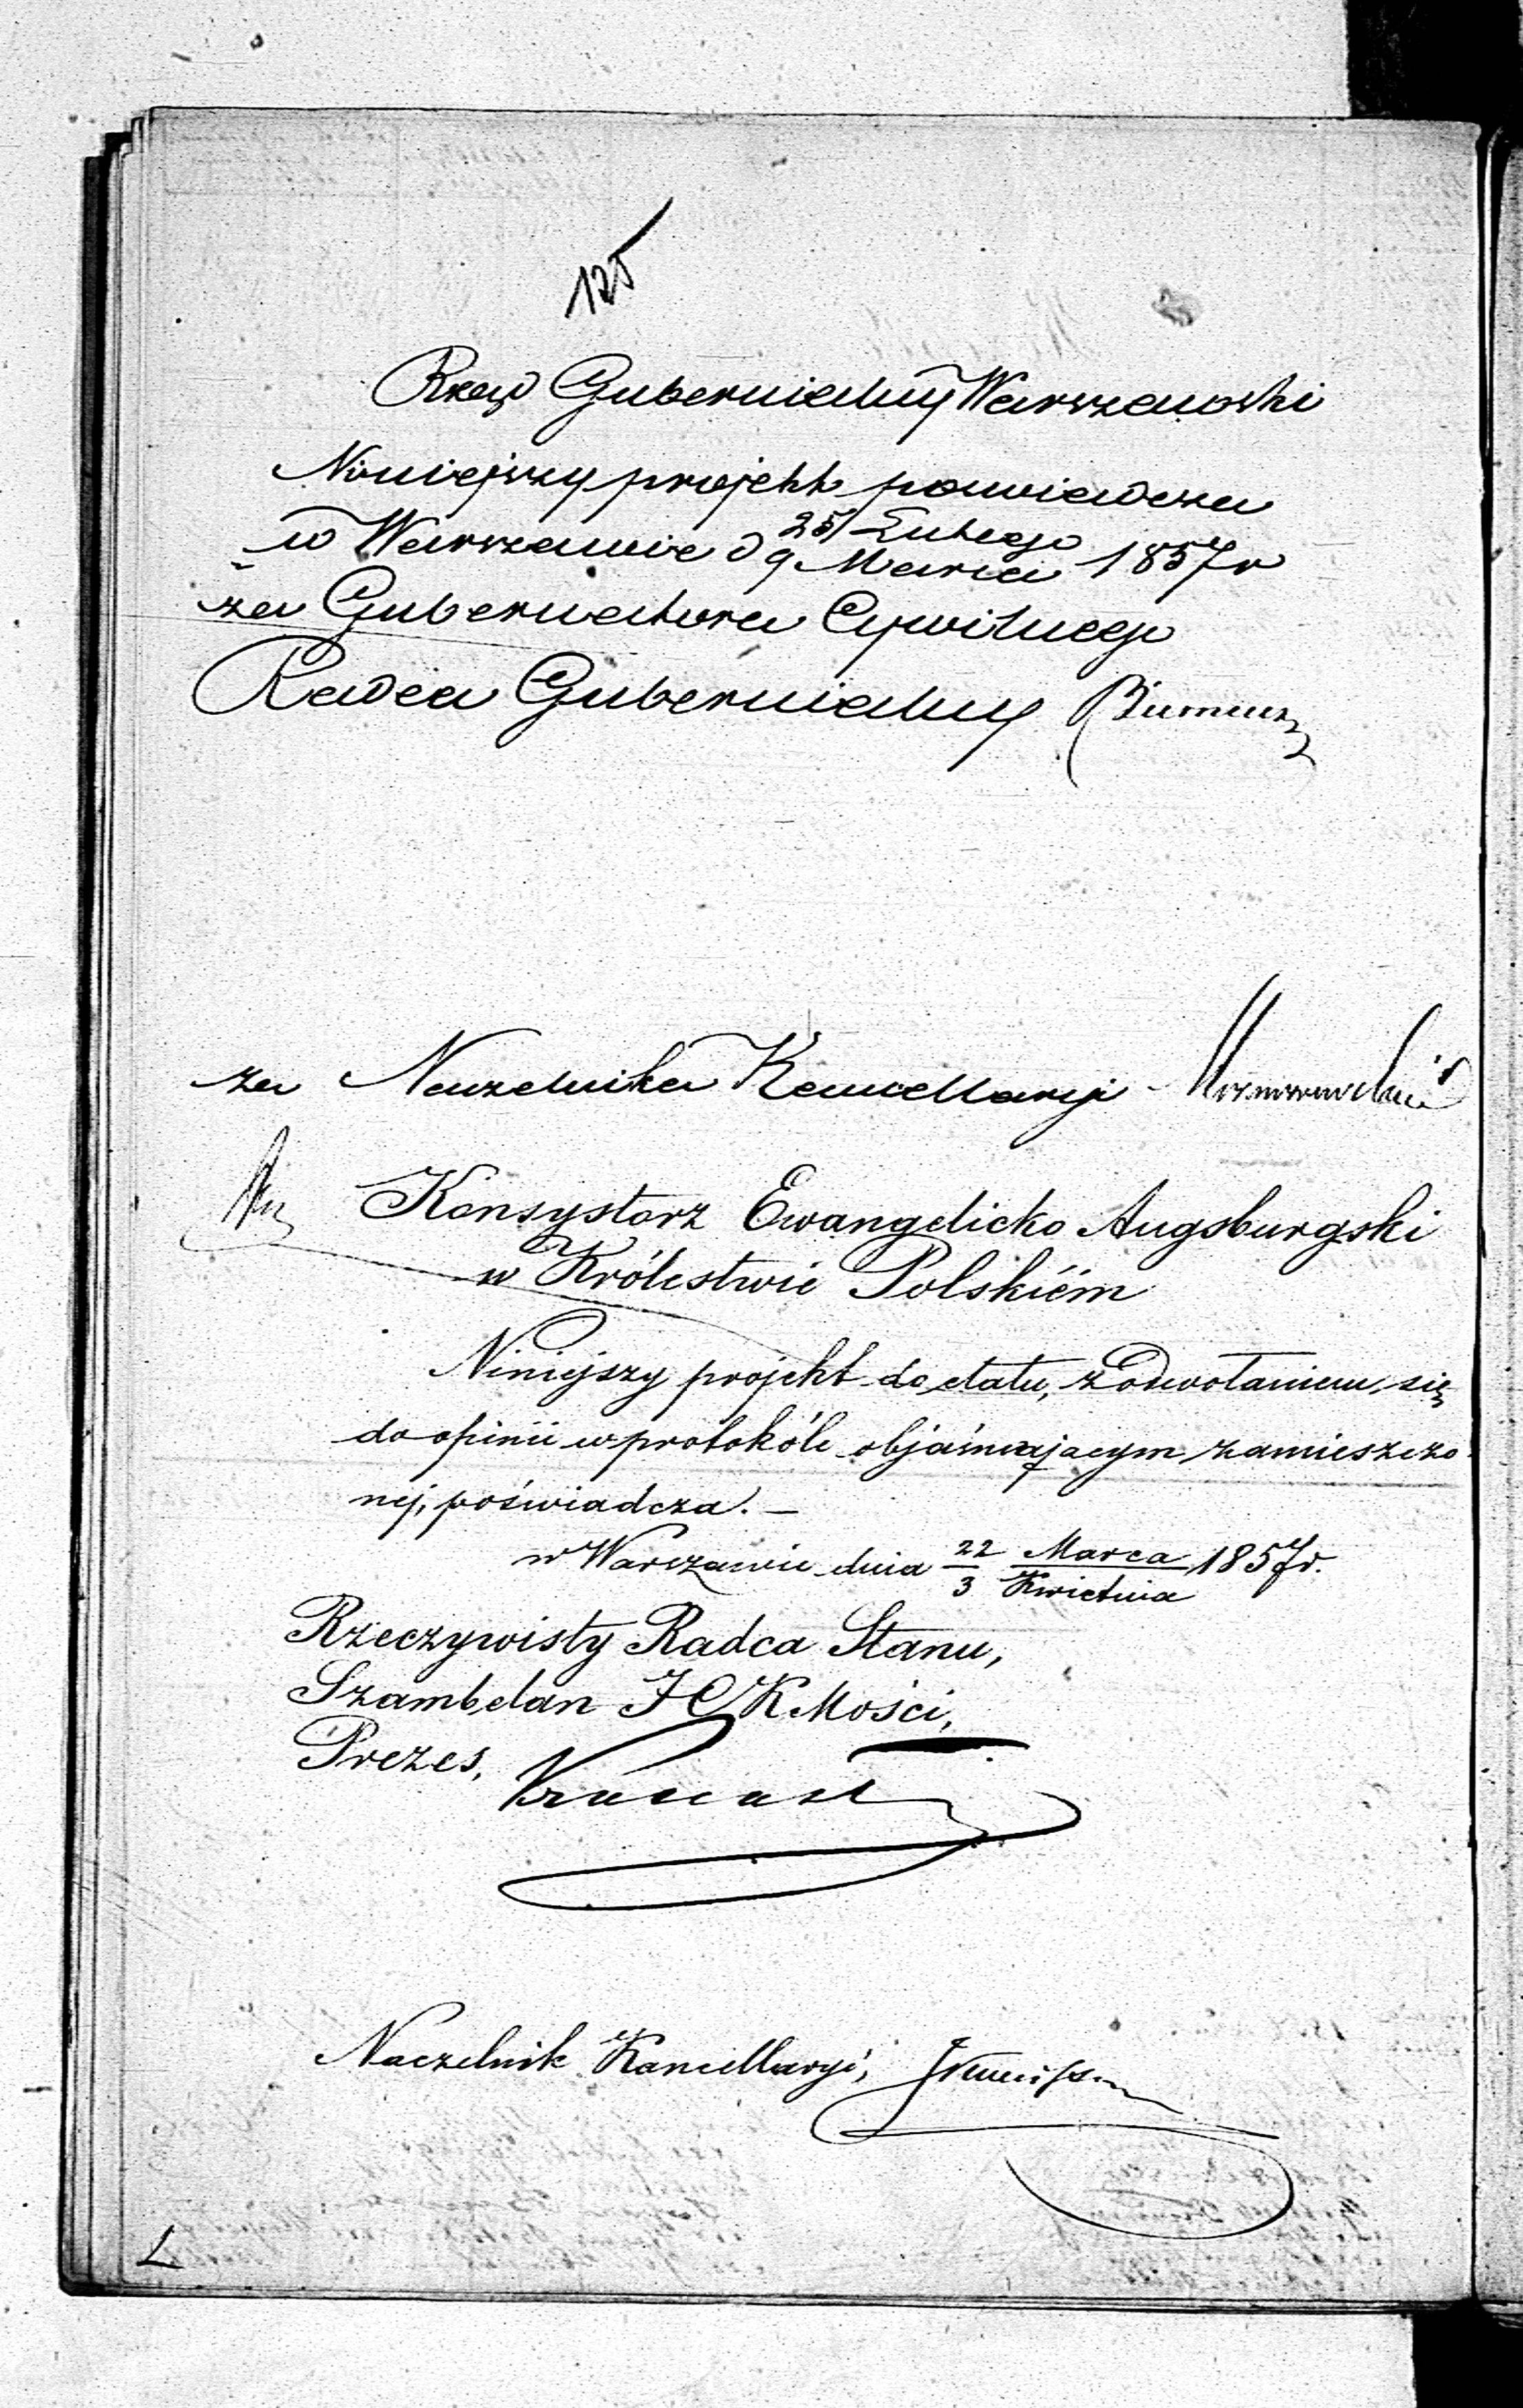 125
Rząd Gubernialny Warszawski
Niniejszy projekt poświadcza
w Warszawie d 25 Lutego
9 Marca 1857 r
za Gubernatora Cywilnego
Radca Gubernialny
za Naczelnika Kancellaryi
Konsystorz Ewangelicko Augsburgski
w Królestwie Polskiém
Niniejszy projekt do etatu, z odwołaniem się
do opinii w protokóle objaśniającym zamieszczo-
nej, poświadcza. —
w Warszawie dnia 22 Marca
3 Kwietnia 1857 r.
Rzeczywisty Radca Stanu,
Szambelan JCK Mości,
Prezes,
Naczelnik Kancellaryi,